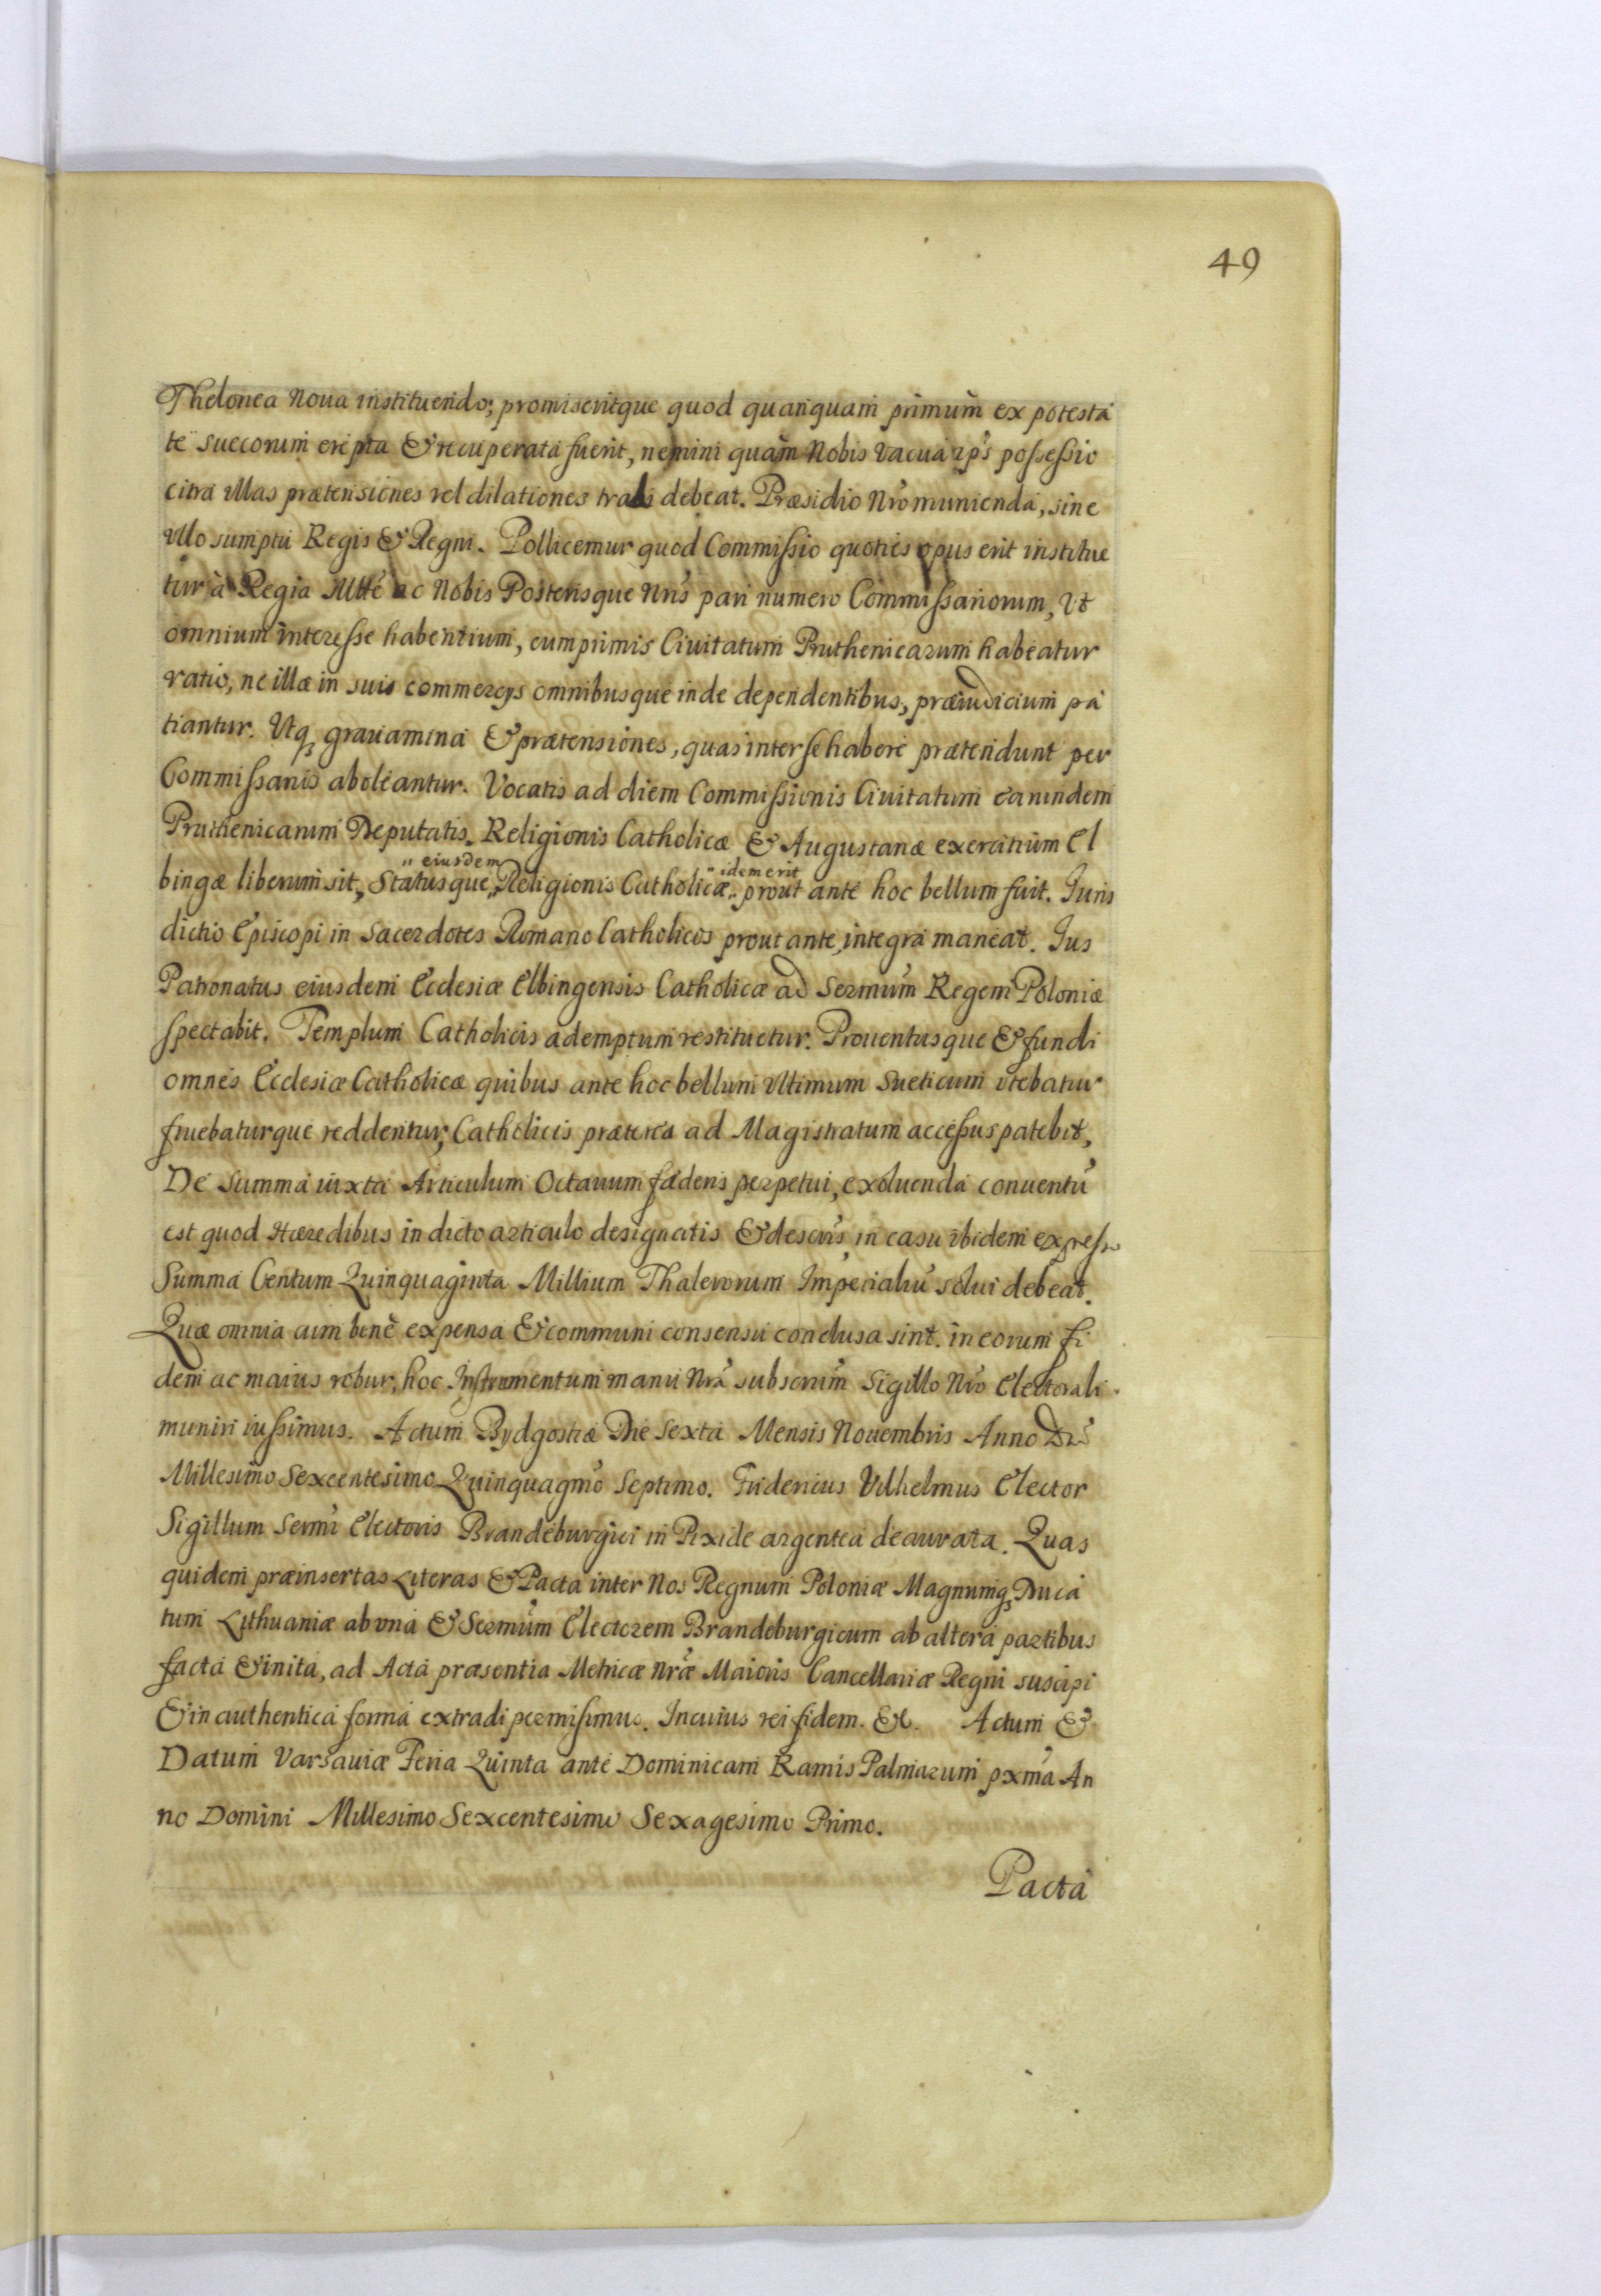 49
Thelonea Noua instituendo; promiseritque quod quanquam primum ex potesta
te suecorum erepta & recuperata fuerit, nemini quam Nobis vacua ips possessio
citra ullas prætensiones vel dilationes tradi debeat. Præsidio Nro munienda, sine
vllo sumptu Regis & Regni. Pollicemur quod Commissio quoties opus erit institue
tur à Regia Mtte ac Nobis Posterisque Nris pari numero Commissariorum, Vt
omnium interesse habentium, cumprimis Ciuitatum Pruthenicarum habeatur
ratio, ne illæ in suis commercys omnibusque inde dependentibus, præiudicium pa
tiantur. Vtq grauamina & prætensiones, quas inter se habere prætendunt per
Commissarios aboleantur. Vocatis ad diem Commissionis Ciuitatum earundem
Pruthenicarum Deputatis. Religionis Catholicæ & Augustanæ exercitium El
" eiusdem " idem erit
bingæ liberum sit, Statusque,, Religionis Catholicæ,, prout ante hoc bellum fuit. Juris
dictio Episcopi in Sacerdotes Romano Catholicos prout ante, integra maneat. Jus
Patronatus eiusdem Ecclesiæ Elbingensis Catholicæ ad Sermum Regem Poloniæ
spectabit. Templum Catholicis ademptum restituetur. Prouentusque & fundi
omnes Ecclesiæ Catholicæ quibus ante hoc bellum Vltimum Sueticum vtebatur
fruebaturque reddentur, Catholicis præterea ad Magistratum accessus patebit,
De summa iuxta Articulum Octauum fæderis perpetui, exoluenda conuentu
est quod Hæredibus in dicto articulo designatis & descris in casu ibidem expresso
Summa Centum Quinquaginta Millium Thalerorum Imperialiu solui debeat.
Quæ omnia cum bene expensa & communi consensu conclusa sint. in eorum fi
dem ac maius robur, hoc Instrumentum manu Nra subscrim Sigillo Nro Electorali
muniri iussimus. Actum Bydgostiæ Die Sexta Mensis Nouembris Anno Dni
Millesimo Sexcentesimo Quinquagmo Septimo. Fridericus Vilhelmus Elector
Sigillum Sermi Electoris Brandeburgici in Pixide argentea deaurata. Quas
quidem præinsertas Literas & Pacta inter Nos Regnum Poloniæ Magnumq Duca
tum Lithuaniæ ab vna & Sermum Electorem Brandeburgicum ab altera partibus
facta & inita, ad Acta præsentia Metricæ Nræ Maioris Cancellariæ Regni suscipi
& in authentica forma extradi permisimus. In cuius rei fidem. &c. Actum &
Datum Varsauiæ Feria Quinta ante Dominicam Ramis Palmarum pxma An
no Domini Millesimo Sexcentesimo Sexagesimo Primo.
Pacta